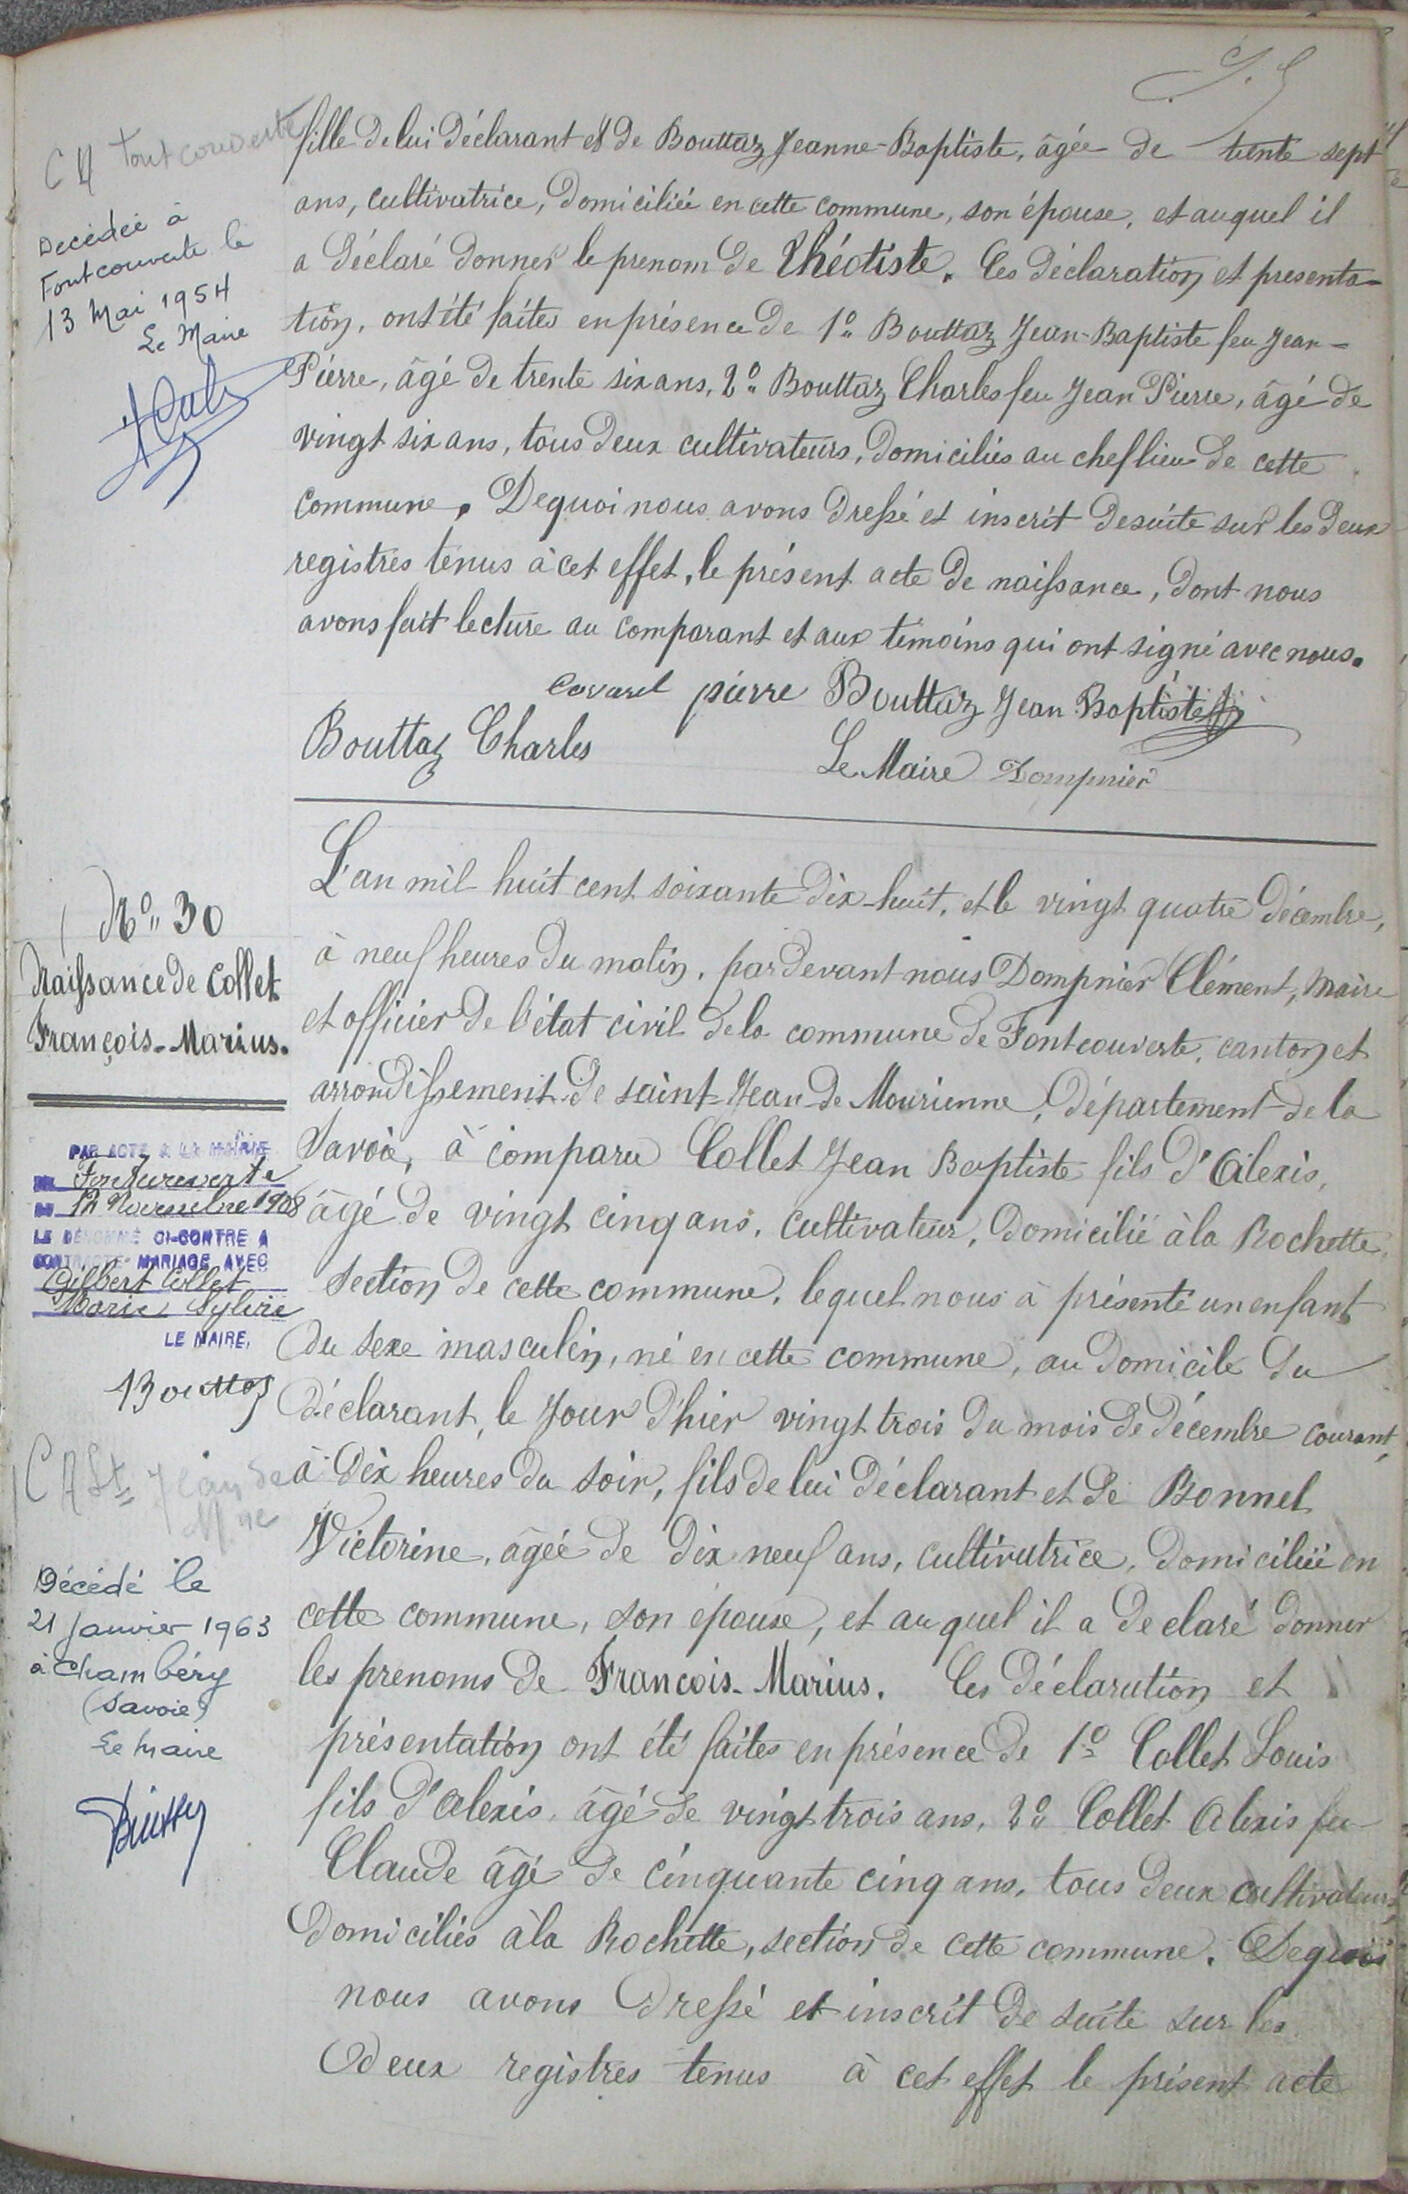 fille de lui déclarant et de Bouttaz Jeanne-Baptiste, âgée de trente sept
ans, cultivatrice, domiciliée en cette commune, son épouse, et auquel il
a déclaré donner le prenom de Théotiste. Ces déclaration et presenta-
tion, ont été faites en présence de 1° Bouttaz Jean-Baptiste feu Jean-
Pierre, âgé de trente six ans, 2° Bouttaz Charles feu Jean Pierre, âgé de
vingt six ans, tous deux cultivateurs, domiciliés au chef lieu de cette
commune. De quoi nous avons dressé et inscrit de suite sur les deux
registres tenus à cet effet, le présent acte de naissance, dont nous
avons fait lecture au comparant et aux témoins qui ont signé avec nous.
Covarel pierre Bouttaz Jean Baptiste
Bouttaz Charles Le Maire Dompnier
CA Fontcouverte
Décédée à
Fontcouverte le
13 Mai 1954
Le Maire
N° 30
Naissance de Collet
François-Marius.
PAR ACTE A LA MAIRIE
DE Fontcouverte
DU 12 Novembre 1908
LE DÉNOMMÉ CI-CONTRE A
CONTRACTÉ MARIAGE AVEC
Gilbert Collet
Marie Sylvie
LE MAIRE,
Bouttaz
CA St Jean de
Mne
Décédé le
21 Janvier 1963
à Chambéry
(Savoie)
Le Maire
L'an mil huit cent soixante dix-huit, et le vingt quatre décembre,
à neuf heures du matin, par devant nous Dompnier Clément, Maire
et officier de l'état civil de la commune de Fontcouverte, canton et
arrondissement de saint-Jean-de Maurienne, département de la
Savoie, à comparu Collet Jean Baptiste fils d'Alexis,
âgé de vingt cinq ans, cultivateur, domicilié à la Rochette,
section de cette commune, lequel nous à présenté un enfant
du sexe masculin, né en cette commune, au domicile du
déclarant, le Jour d'hier vingt trois du mois de décembre courant,
à dix heures du soir, fils de lui déclarant et de Bonnel
Victorine, âgée de dix neuf ans, cultivatrice, domiciliée en
cette commune, son épouse, et auquel il a declaré donner
les prenoms de François-Marius. Ces déclaration et
présentation ont été faites en présence de 1° Collet Louis
fils d'Alexis, âgé de vingt trois ans, 2° Collet Alexis feu
Claude âgé de cinquante cinq ans, tous deux cultivateurs,
domiciliés à la Rochette, section de cette commune. De quoi
nous avons dressé et inscrit de suite sur les
deux registres tenus à cet effet le présent acte